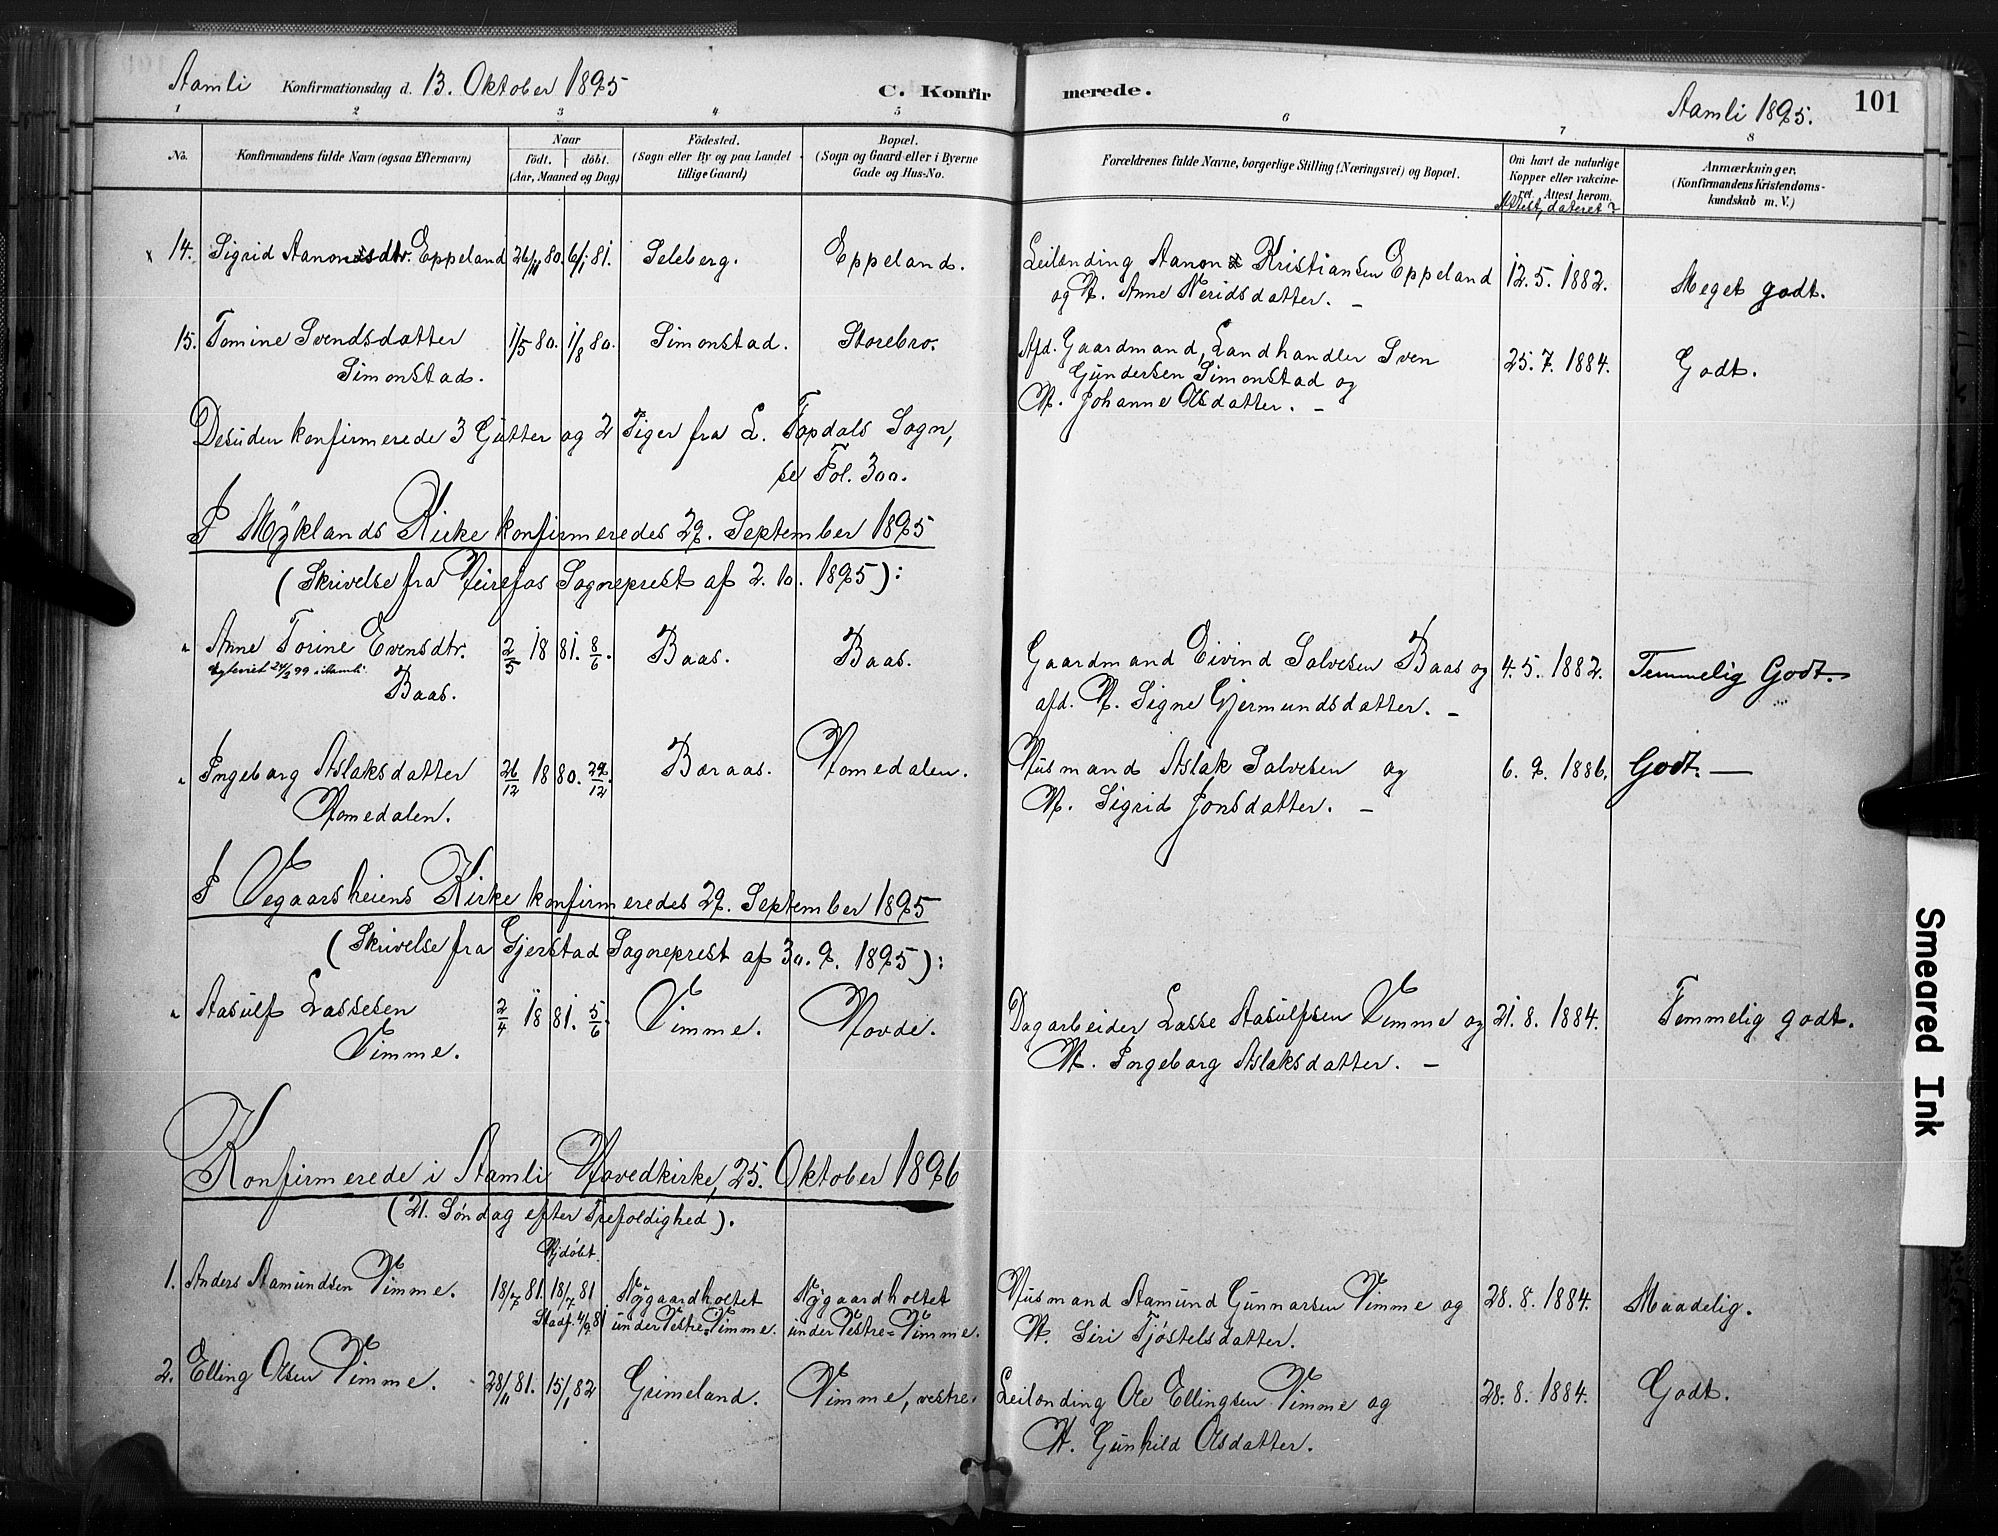 Aamli Konfirmationsdag d. 13. Oktober 1895 C. Konfirmerede. Aamli 1895. 101
1 2 3 4 5 6 7 8
No. Konfirmandens fulde Navn (ogsaa Efternavn) Naar født. døbt. (Aar, Maaned og Dag) Fødested. (Sogn eller By og paa Landet tillige Gaard) Bopæl. (Sogn og Gaard eller i Byerne Gade og Hus-No. Forældrenes fulde Navne, borgerlige Stilling (Næringsvei) og Bopæl. Om havt de naturlige Kopper eller vakcineret. Attest herom. Attest, dateret? Anmærkninger. (Konfirmandens Kristendomskundskab m. V.)
x 14. Sigrid Aanonsdtr. Eppeland 26/11 80. 6/1 81. Seleberg. Eppeland. Leilænding Aanon Kristiansen Eppeland 12. 5. 1882. Meget godt.
og H. Anne Neridsdatter. –
15. Tomine Svendsdatter 1/5 80. 1/8 80. Simonstad. Storebro. Afd. Gaardmand, Landhandler Sven 25. 7. 1884. Godt.
Simonstad. Gundersen Simonstad og
H. Johanne Olsdatter. –
Desuden konfirmerede 3 Gutter og 2 Piger fra L. Topdals Sogn,
se Fol. 300.
I Myklands Kirke konfirmeredes 29. September 1895
(Skrivelse fra Heirefos Sogneprest af 2. 10. 1895):
" Anne Torine Evensdtr. 2/5 1881. 8/6. Baas. Baas. Gaardmand Eivind Salvesen Baas og 4. 5. 1882. Temmelig Godt.
24/2 99 i Aamli
Baas. afd. H. Signe Gjermundsdatter. –
" Ingeborg Aslaksdatter 26/12 1880. 29/12. Bæraas. Homedalen. Husmand Aslak Salvesen og 6. 9. 1886. Godt. –
Homedalen. H. Sigrid Jonsdatter. –
I Vegaarsheiens Kirke konfirmeredes 29. September 1895
(Skrivelse fra Gjerstad Sogneprest af 30. 9. 1895):
" Aasulf Lassesen 2/4 1881. 5/6. Vimme. Hovde. Dagarbeider Lasse Aasulfsen Vimme og 21. 8. 1884. Temmelig godt.
Vimme. H. Ingeborg Aslaksdatter. –
Konfirmerede i Aamli Hovedkirke, 25. Oktober 1896
(21. Søndag efter Trefoldighed).
Hjdøbt.
1. Anders Aamundsen Vimme. 18/7 81. 18/7 81 Nygaardholtet Nygaardholtet Husmand Aamund Gunnarsen Vimme og 28. 8. 1884. Maadelig.
Stadf. 4/9 81 under Vestre-Vimme. under Vestre-Vimme. H. Siri Tjøstelsdatter.
2. Elling Olsen Vimme. 28/11 81. 15/1 82 Grimeland. Vimme, vestre. Leilænding Ole Ellingsen Vimme og 28. 8. 1884. Godt.
H. Gunhild Olsdatter.
Smeared Ink